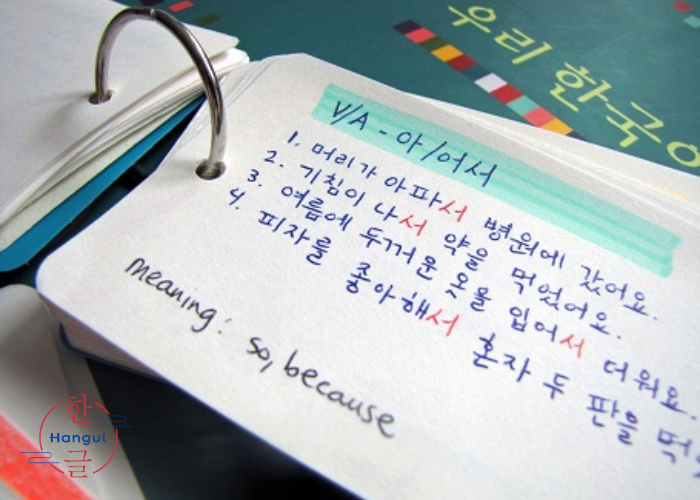 우리 한국어
V/A - 아/어서
1. 머리가 아파서 병원에 갔어요.
2. 기침이 나서 약을 먹었어요.
3. 여름에 두꺼운 옷을 입어서 더워요.
4. 피자를 좋아해서 혼자 두 판을
meaning: so, because
한
Hangul
글